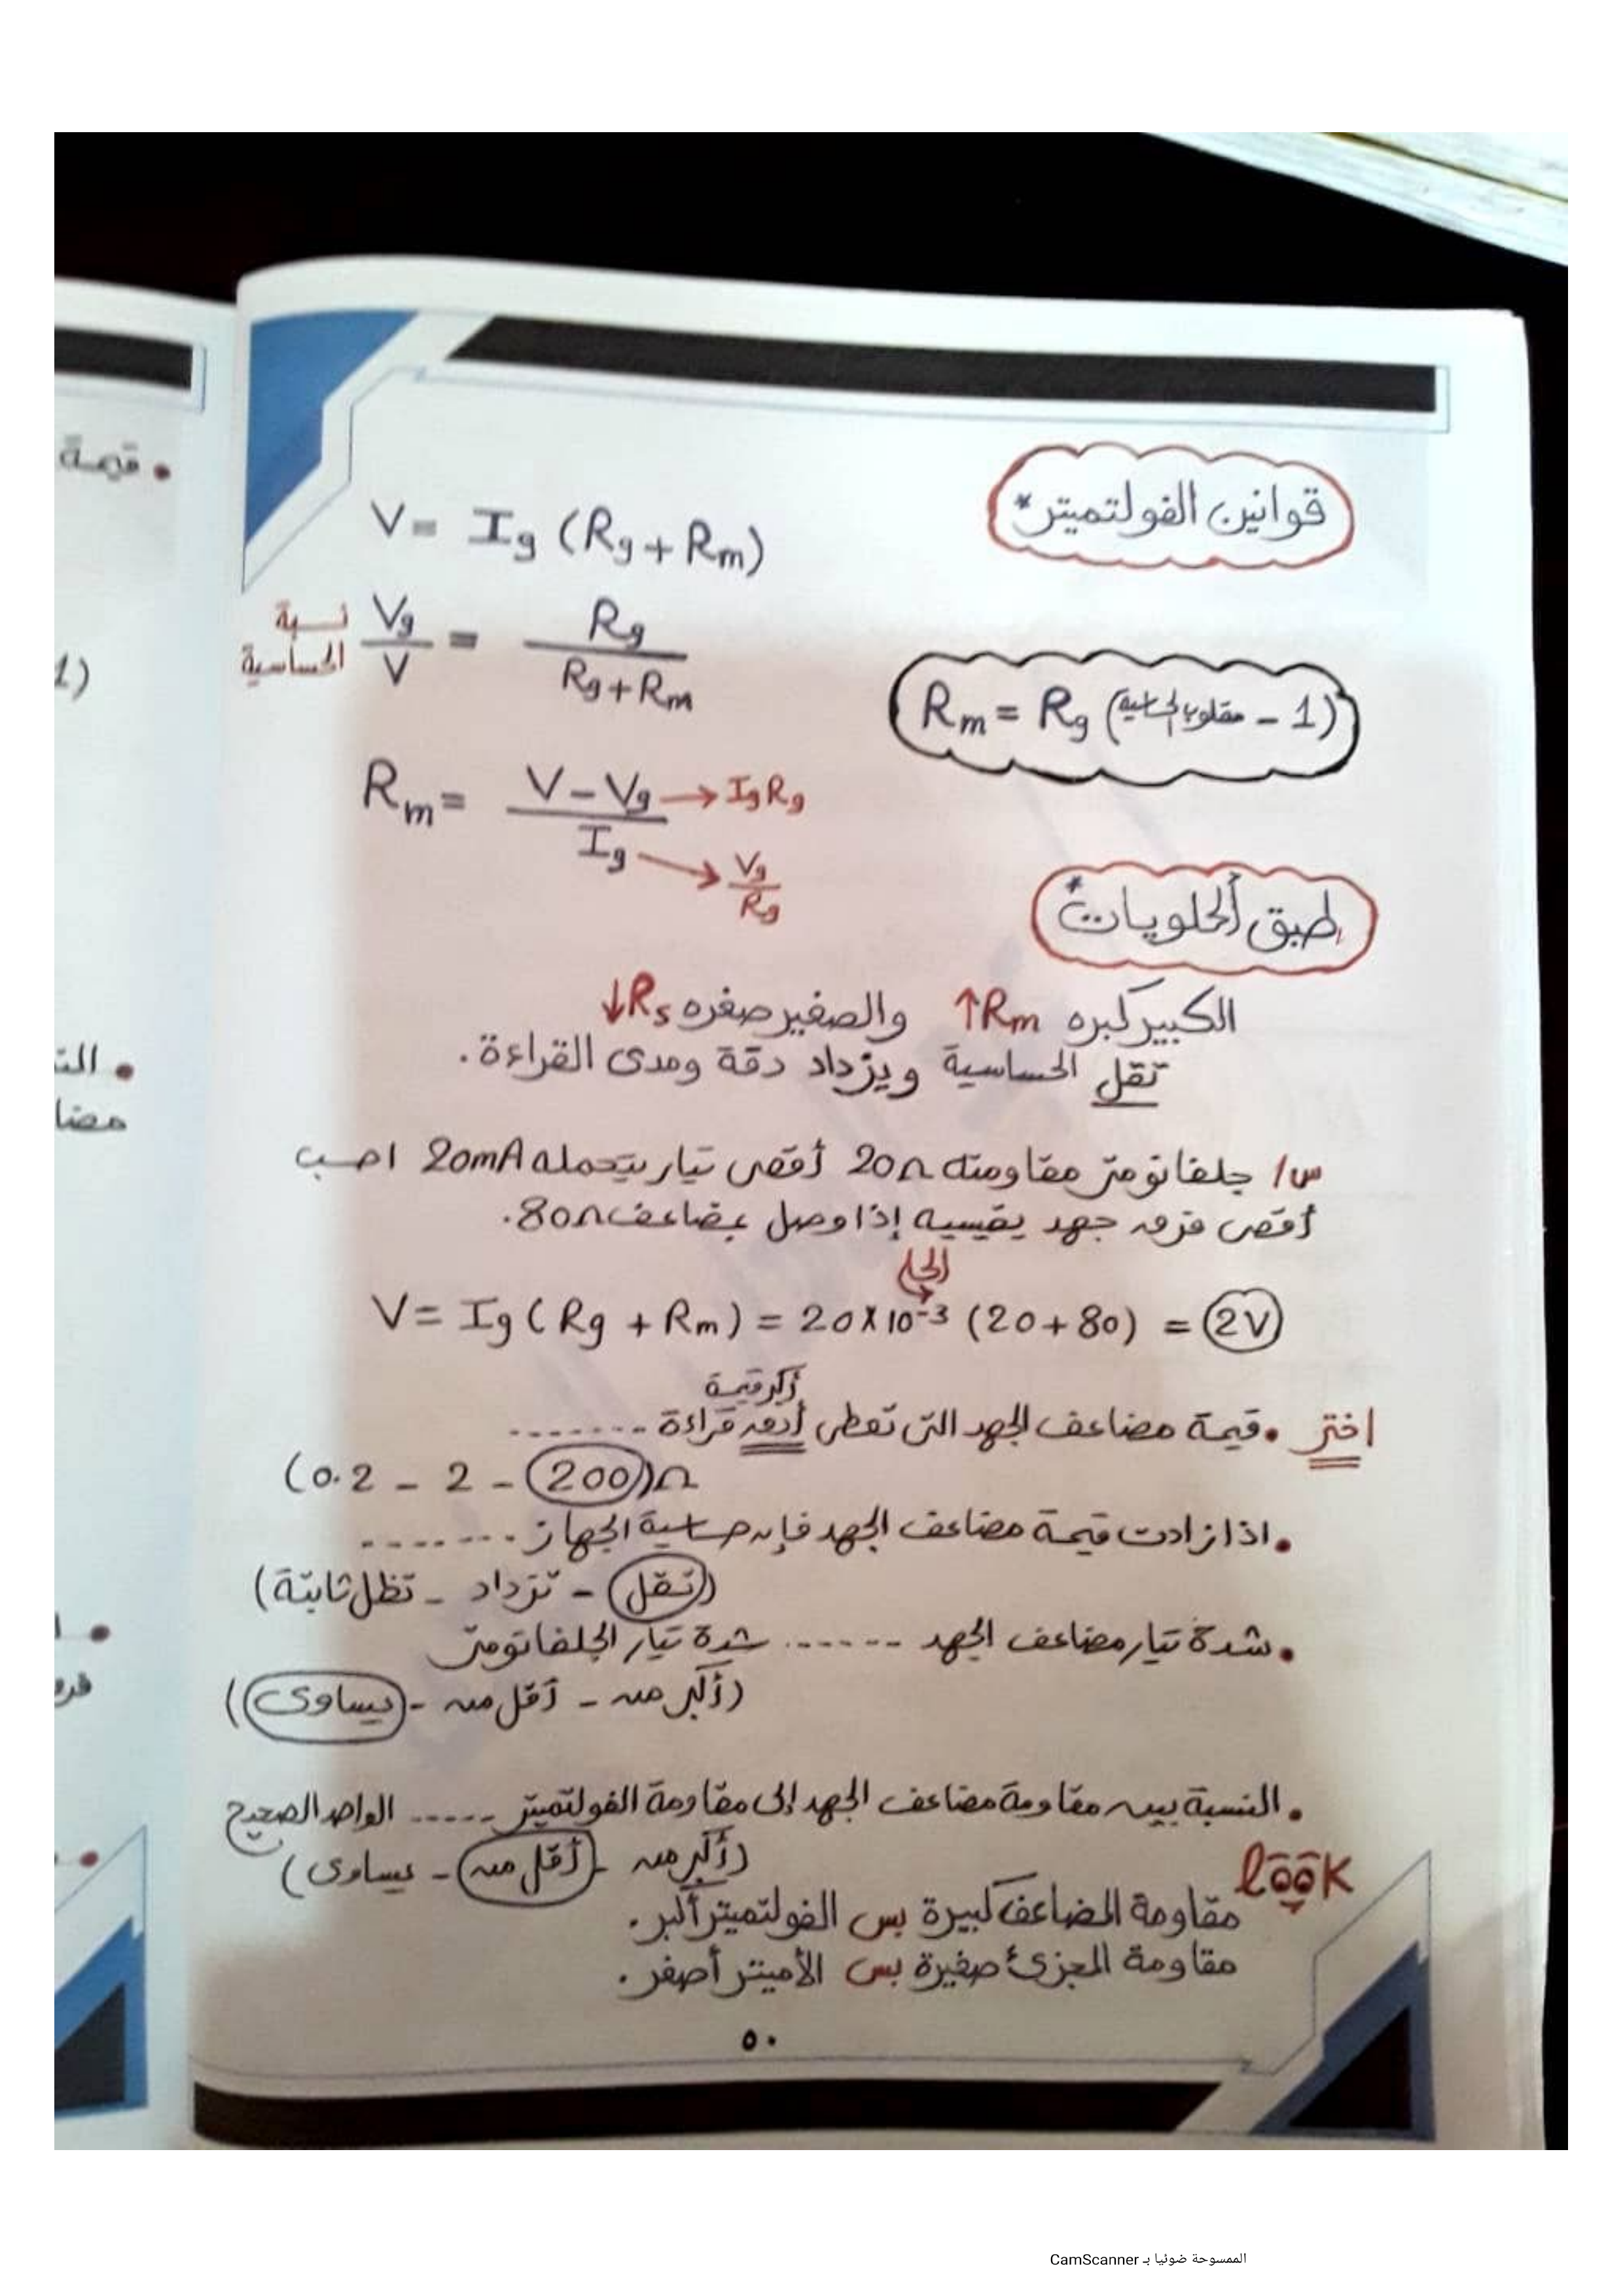 قوانين الفولتميتر *
V = Ig (Rg + Rm)
نسبة الحساسية Vg / V = Rg / Rg + Rm
Rm = Rg (مقلوب الحساسية - 1)
Rm = V - Vg / Ig
→ Ig Rg
→ Vg / Rg
طبق الحلويات *
الكبير كبره ↑Rm والصغير صغره ↓Rs
تقل الحساسية ويزداد دقة ومدى القراءة.
س/ جلفانومتر مقاومته 20Ω أقصى تيار يتحمله 20mA احسب
أقصى فرق جهد يقيسه إذا وصل بمضاعف 80Ω.
الحل
V = Ig (Rg + Rm) = 20 X 10⁻³ (20 + 80) = 2V
أكبر قيمة
اختر • قيمة مضاعف الجهد التى تعطى أدق قراءة .......
(0.2 - 2 - 200)Ω
• اذا زادت قيمة مضاعف الجهد فإن حساسية الجهاز .......
(تقل - تزداد - تظل ثابتة)
• شدة تيار مضاعف الجهد ...... شدة تيار الجلفانومتر
(أكبر من - أقل من - يساوى)
• النسبة بين مقاومة مضاعف الجهد إلى مقاومة الفولتميتر ..... الواحد الصحيح
(أكبر من - أقل من - يساوى)
look
مقاومة المضاعف كبيرة بس الفولتميتر أكبر.
مقاومة المجزئ صغيرة بس الأميتر أصغر.
٥٠
• قيمة
1)
• الت
مضا
الممسوحة ضوئيا بـ CamScanner